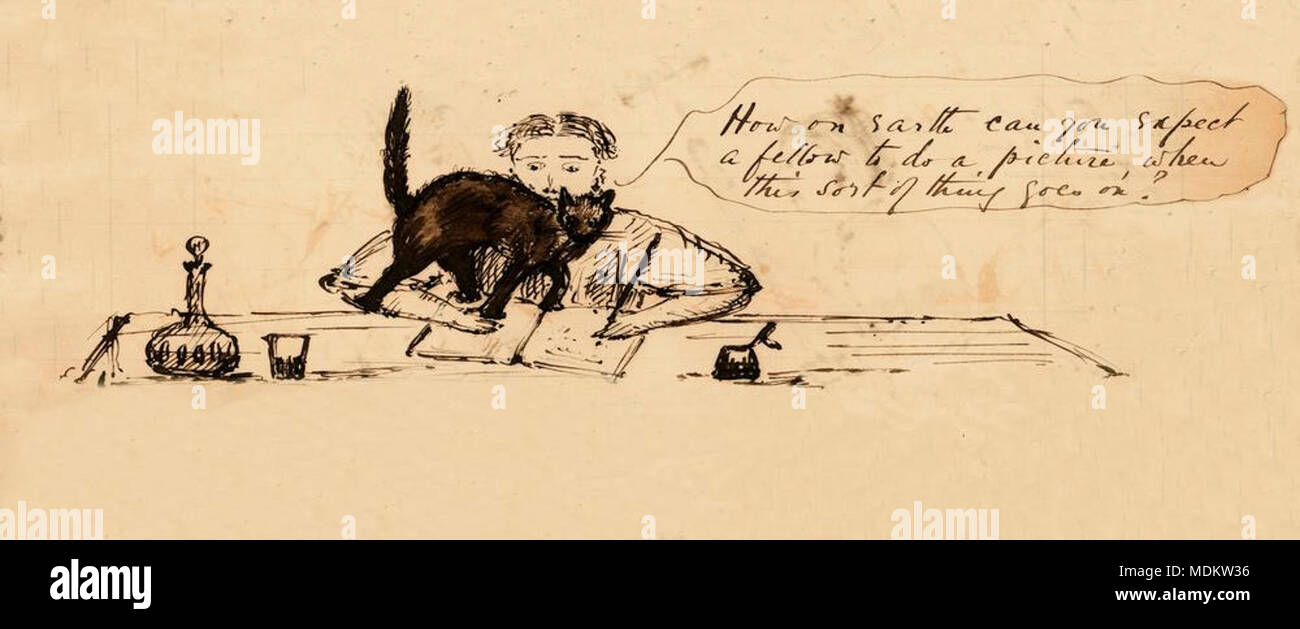 How on earth can you expect
a fellow to do a picture when
this sort of thing goes on?
alamy
alamy
alamy
alamy
Image ID: MDKW36
www.alamy.com